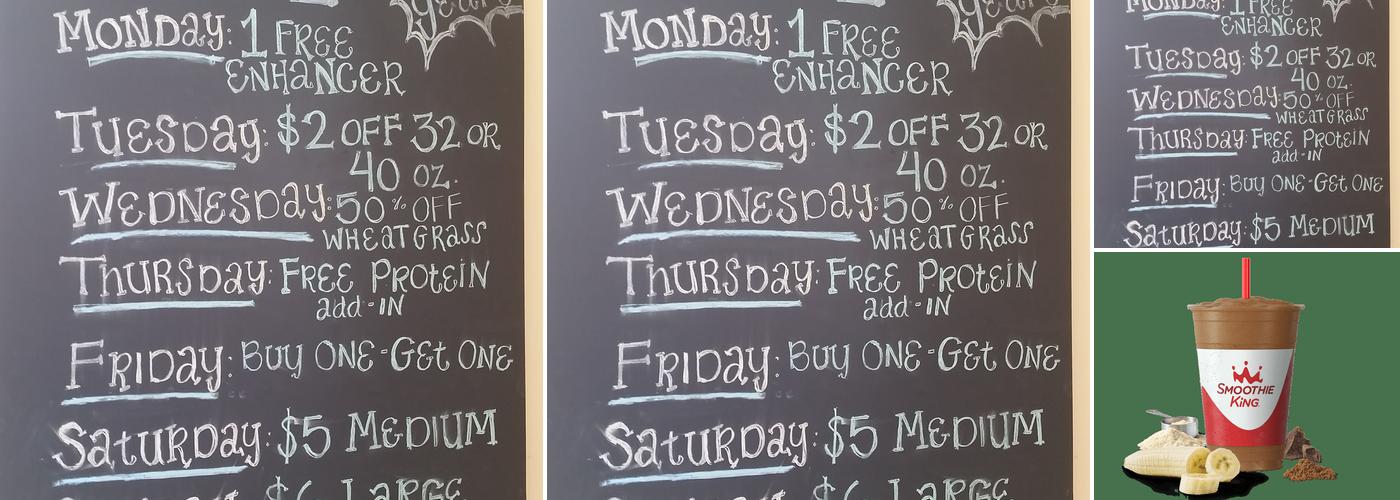 MONDay: 1 FREE
ENHaNCER
TUESDay: $2 OFF 32 OR
40 OZ.
WEDNESDay: 50% OFF
WHEATGRASS
THURSDay: FREE PROtEiN
add-IN
FRiDay: BUY ONE-GEt ONE
SatURDay: $5 MEDIUM
$6 LARGE
MONDay: 1 FREE
ENHaNCER
TUESDay: $2 OFF 32 OR
40 OZ.
WEDNESDay: 50% OFF
WHEATGRASS
THURSDay: FREE PROtEiN
add-IN
FRiDay: BUY ONE-GEt ONE
SatURDay: $5 MEDIUM
$6 LARGE
MONDay: 1 FREE
ENHaNCER
TUESDay: $2 OFF 32 OR
40 OZ.
WEDNESDay: 50% OFF
WHEATGRASS
THURSDay: FREE PROtEiN
add-IN
FRiDay: BUY ONE-GEt ONE
SatURDay: $5 MEDIUM
SMOOTHIE
KING